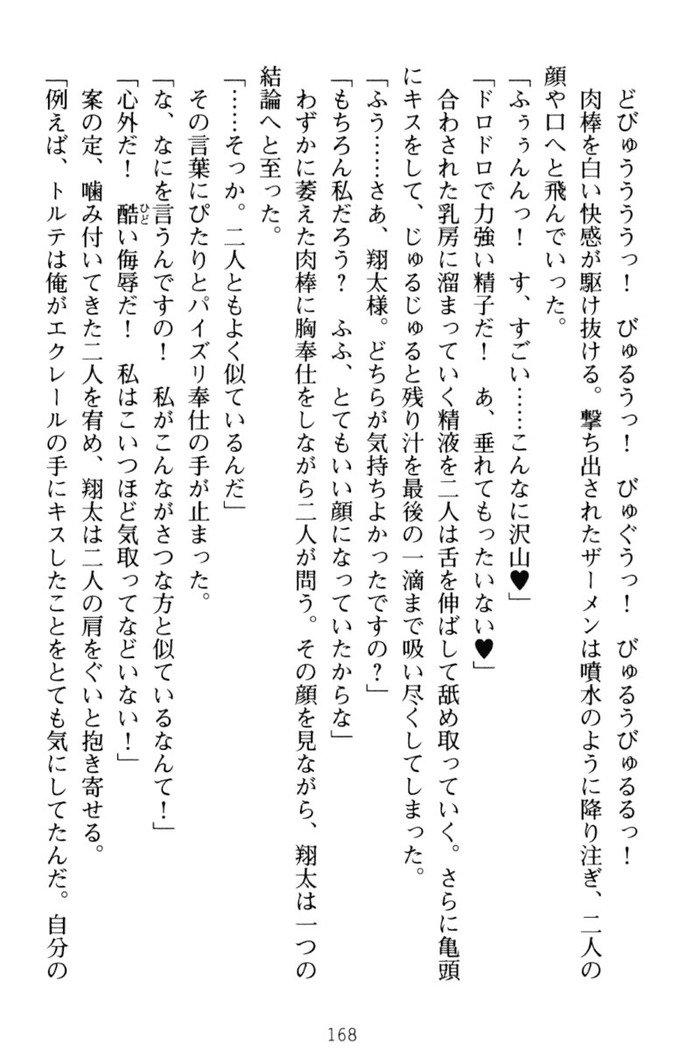 どびゅうううっ！　びゅるうっ！　びゅぐうっ！　びゅるうびゅるるっ！
肉棒を白い快感が駆け抜ける。撃ち出されたザーメンは噴水のように降り注ぎ、二人の
顔や口へと飛んでいった。
「ふぅぅんんっ！　す、すごい……こんなに沢山♥」
「ドロドロで力強い精子だ！　あ、垂れてもったいない♥」
合わされた乳房に溜まっていく精液を二人は舌を伸ばして舐め取っていく。さらに亀頭
にキスをして、じゅるじゅると残り汁を最後の一滴まで吸い尽くしてしまった。
「ふう……さあ、翔太様。どちらが気持ちよかったですの？」
「もちろん私だろう？　ふふ、とてもいい顔になっていたからな」
わずかに萎えた肉棒に胸奉仕をしながら二人が問う。その顔を見ながら、翔太は一つの
結論へと至った。
「……そっか。二人ともよく似ているんだ」
その言葉にぴたりとパイズリ奉仕の手が止まった。
「な、なにを言うんですの！　私がこんながさつな方と似ているなんて！」
「心外だ！　酷い侮辱だ！　私はこいつほど気取ってなどいない！」
案の定、噛み付いてきた二人を宥め、翔太は二人の肩をぐいと抱き寄せる。
「例えば、トルテは俺がエクレールの手にキスしたことをとても気にしてたんだ。自分の
168